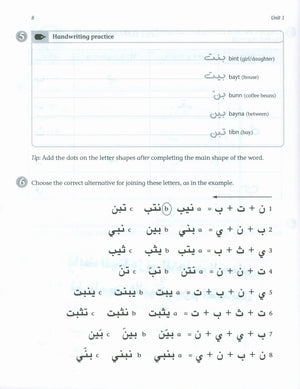 8 Unit 1
5 Handwriting practice
بنت bint (girl/daughter)
بيت bayt (house)
بنّ bunn (coffee beans)
بين bayna (between)
تبن tibn (hay)
Tip: Add the dots on the letter shapes after completing the main shape of the word.
6 Choose the correct alternative for joining these letters, as in the example.
1 ن + ت + ب = a نيب b نتب c تبن
2 ب + ن + ي = a بني b بين c نبي
3 ي + ث + ب = a يتب b يثب c ثيب
4 ت + ن + ن = a نتن b c تنّ
5 ي + ن + ب + ت = a b يبنت c ينبت
6 ت + ث + ب + ت = a يثبت b نثبت c تثبت
7 ب + ي + ي + ن = a بيّن b بينّ c
8 ن + ب + ن + ي = a b نبني c بنّي